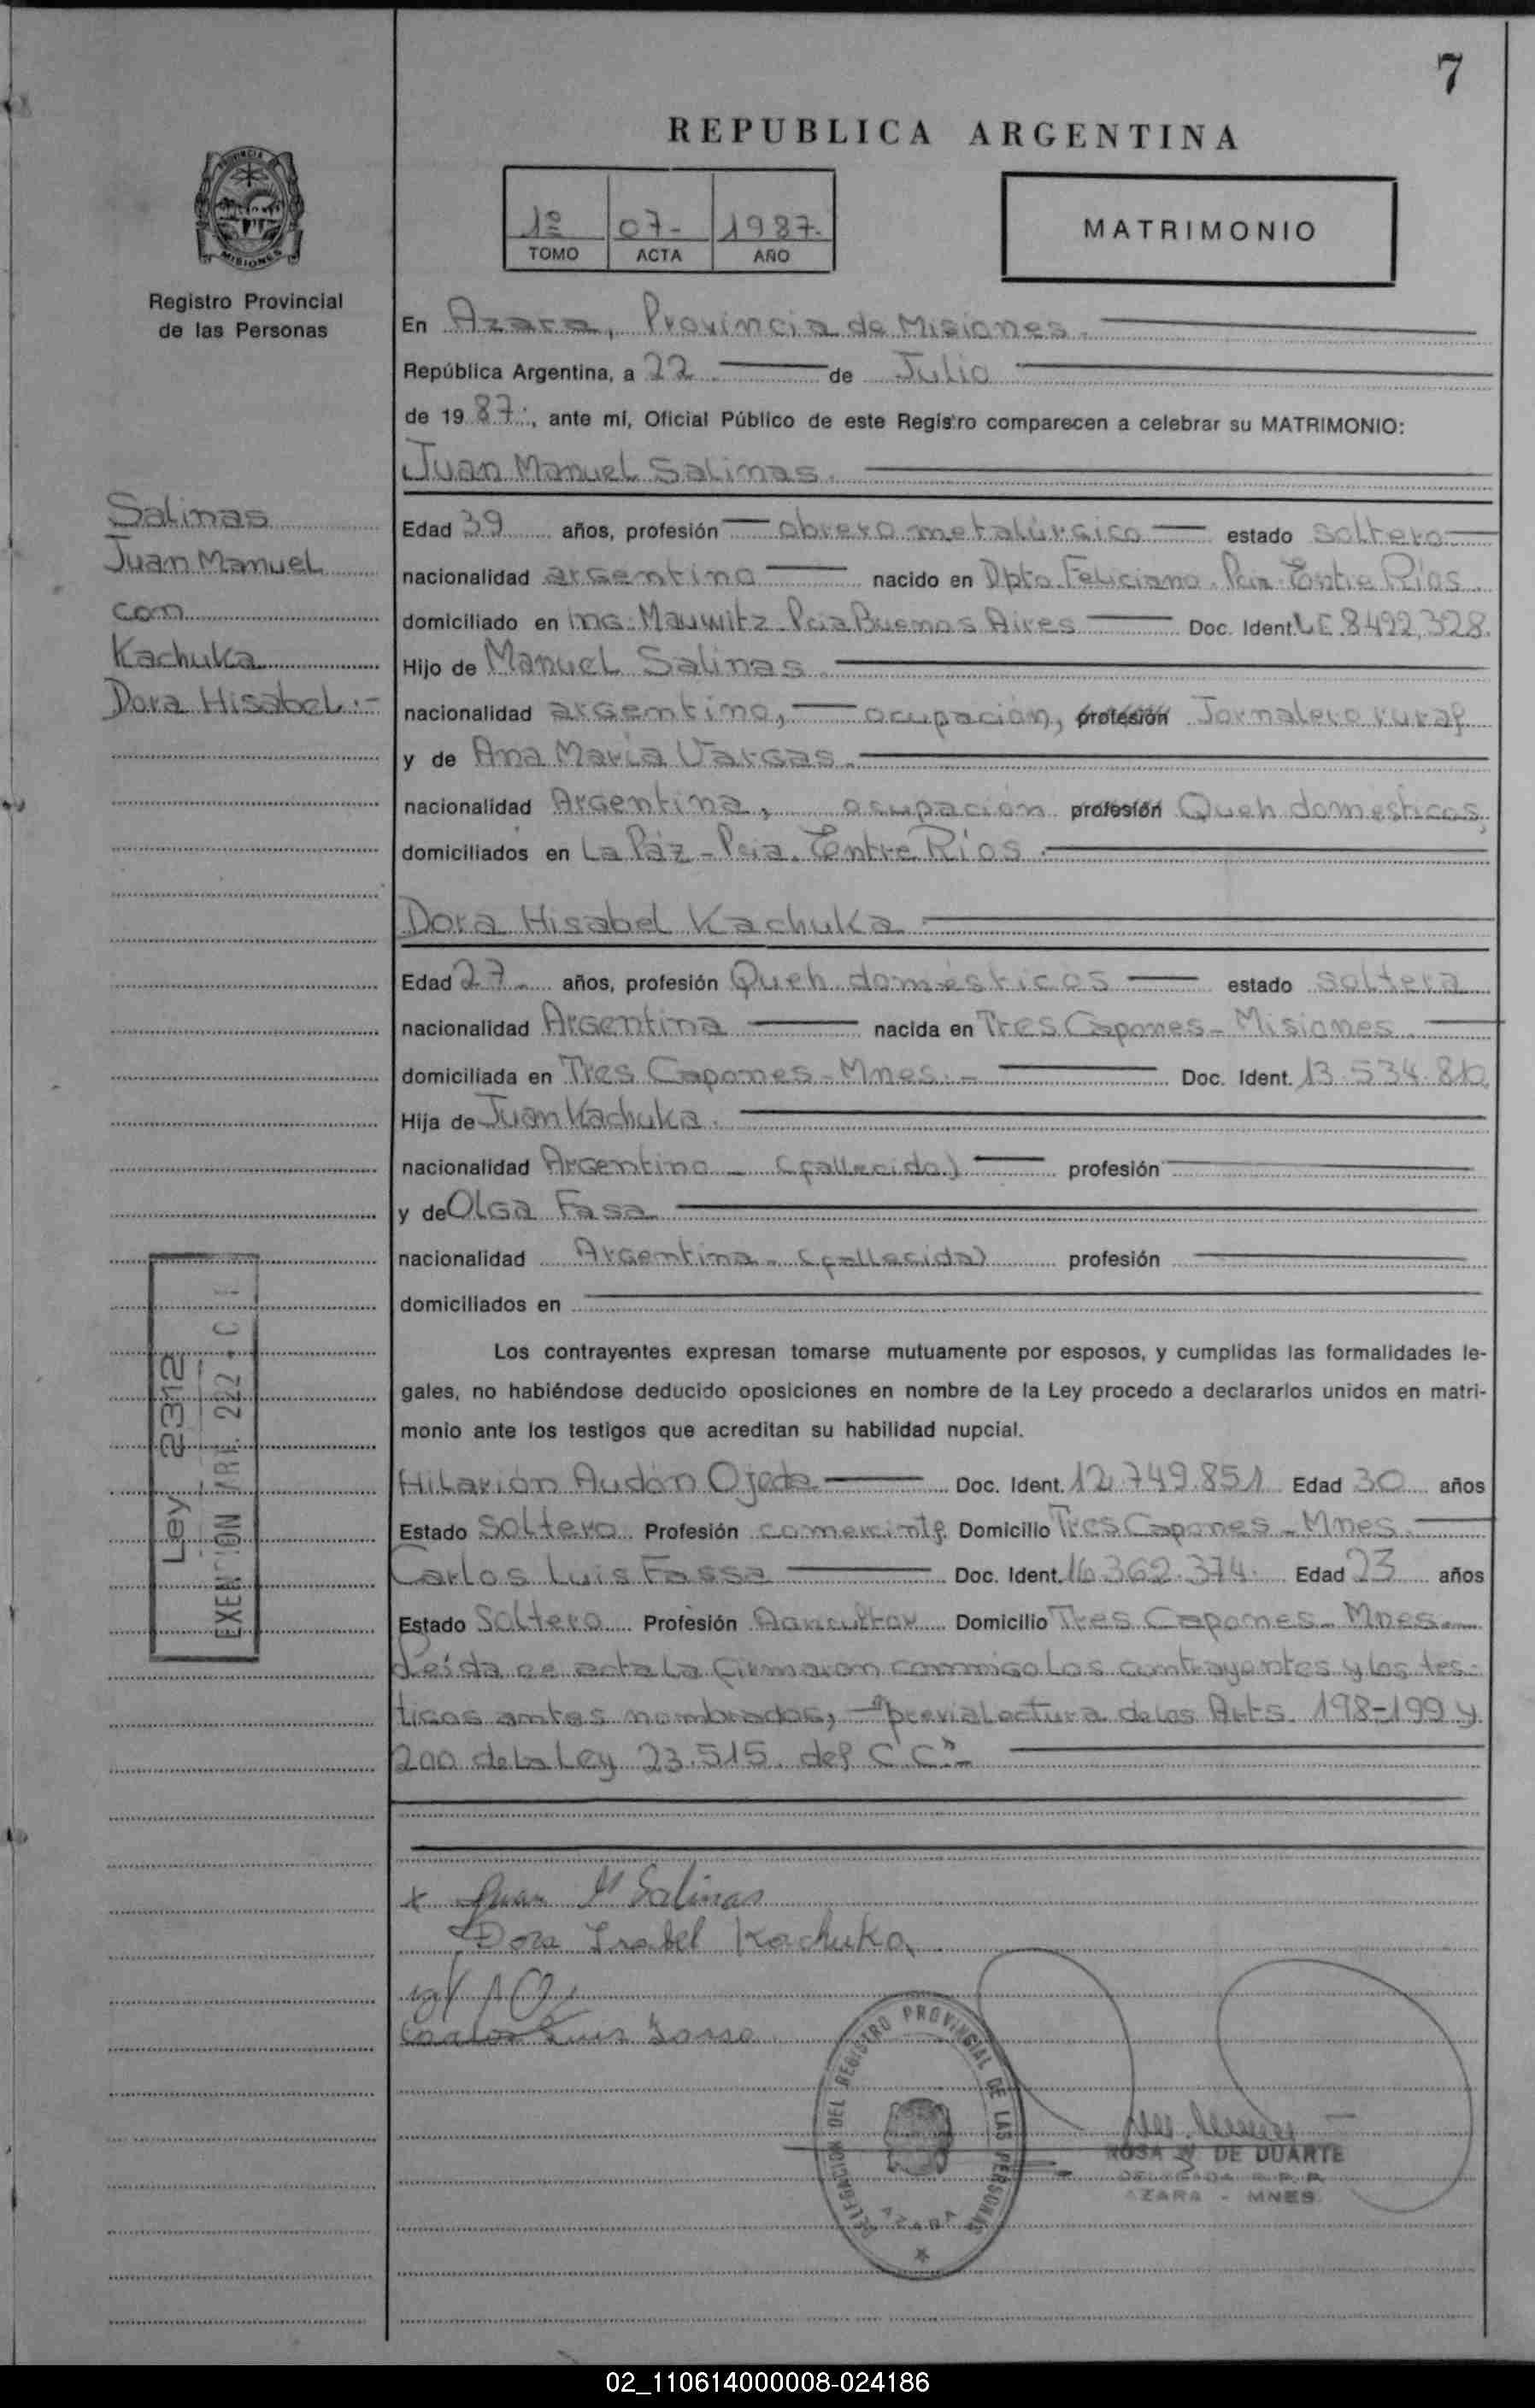 7
REPUBLICA ARGENTINA
1º 07- 1987.
TOMO ACTA AÑO
MATRIMONIO
PROVINCIA DE
MISIONES
Registro Provincial
de las Personas
En Azara, Provincia de Misiones.
República Argentina, a 22 de Julio
de 1987., ante mí, Oficial Público de este Registro comparecen a celebrar su MATRIMONIO:
Juan Manuel Salinas.
Salinas
Juan Manuel
con
Kachuka
Dora Hisabel.-
Edad 39 años, profesión obrero metalúrgico estado soltero
nacionalidad argentino nacido en Dpto. Feliciano. Pcia Entre Ríos
domiciliado en Ing. Mauwitz Pcia Buenos Aires Doc. Ident. L.E. 8492,328.
Hijo de Manuel Salinas.
nacionalidad argentino, ocupación, profesión Jornalero rural
y de Ana María Vargas.
nacionalidad Argentina, ocupación profesión Queh domésticos,
domiciliados en La Páz - Pcia. Entre Ríos.
Dora Hisabel Kachuka
Edad 27 años, profesión Queh. domésticos estado soltera
nacionalidad Argentina nacida en Tres Capones - Misiones
domiciliada en Tres Capones - Mnes. - Doc. Ident. 13.534.812
Hija de Juan Kachuka.
nacionalidad Argentino - (fallecido) profesión
y de Olga Fasa
nacionalidad Argentina - (fallecida) profesión
domiciliados en
Ley 2312
EXENCION ART. 222
Los contrayentes expresan tomarse mutuamente por esposos, y cumplidas las formalidades le-
gales, no habiéndose deducido oposiciones en nombre de la Ley procedo a declararlos unidos en matri-
monio ante los testigos que acreditan su habilidad nupcial.
Hilarión Audón Ojeda Doc. Ident. 12.749.851 Edad 30 años
Estado Soltero Profesión comercinte Domicilio Tres Capones - Mnes.
Carlos Luis Fassa Doc. Ident. 16.362.374. Edad 23 años
Estado Soltero Profesión Agricultor Domicilio Tres Capones - Mnes.
Leída se acta la firmaron conmigo los contrayentes y los tes-
tigos antes nombrados, - "previa lectura de los Arts. 198-199 y
200 de la Ley 23.515. del C.C"-
x Juan M Salinas
Dora Isabel Kachuka
Carlos Luis Fassa
DELEGACION DEL REGISTRO PROVINCIAL DE LAS PERSONAS
AZARA
ROSA DE DUARTE
DELEGADA R. P. P.
AZARA - MNES.
02_110614000008-024186